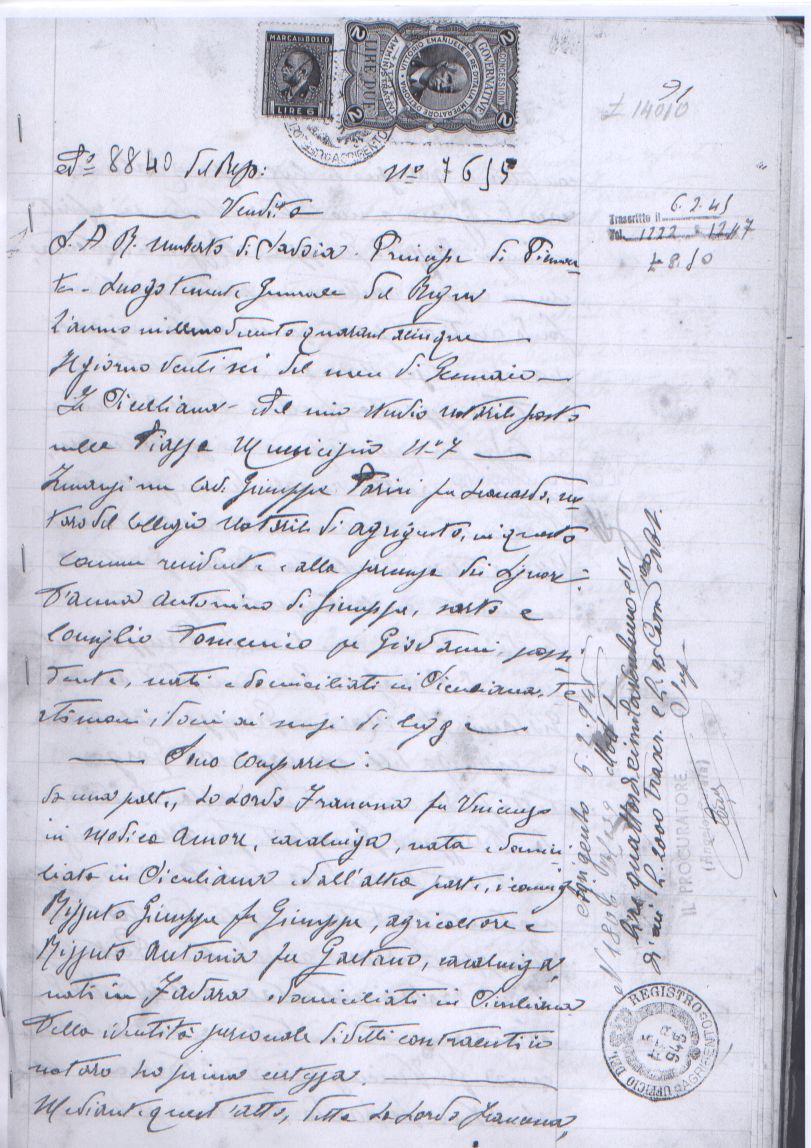 MARCA DA BOLLO
LIRE 6
CONCESSIONI GOVERNATIVE
VITTORIO EMANUELE III RE D'ITALIA IMPERATORE D'ETIOPIA
AMMINISTRATIVE
LIRE DUE
2 2 2 2
£ 14010
No 8840 del Rep: No 7615
Vendita
Trascritto il 6.2.45
Vol. 1222
£ 8.10
S. A. R. Umberto di Savoia Principe di Piemon
te - Luogotenente Generale del Regno
L'anno millenovecento quarantacinque
Il giorno ventisei del mese di Gennaio
In Siculiana - Nel mio studio notarile posto
nella Piazza Municipio No 7
Innanzi me Cav. Giuseppe Parisi fu Leonardo, no
taro del Collegio Notarile di Agrigento, in questo
comune residente e alla presenza dei Signori:
D'Anna Antonino di Giuseppe, sarto e
Coniglio Domenico fu Giovanni, possi
dente, nati e domiciliati in Siculiana, te
stimoni idonei ai sensi di legge
Sono comparsi:
da una parte, Lo Lordo Francesca fu Vincenzo
in Modica Amore, casalinga, nata e domici
liata in Siculiana e dall'altra parte, i coniugi
Rizzuto Giuseppe fu Giuseppe, agricoltore e
Rizzuto Antonia fu Gaetano, casalinga,
nati in Zadara e domiciliati in Siculiana
Della identità personale di detti contraenti io
notaro ho piena certezza.
Mediante quest'atto, detta Lo Lordo Francesca,
Agrigento 5.2.945
Lire quattordicimiladieci
di cui L. 2000 Trascr. e L.
IL PROCURATORE
UFFICIO DEL REGISTRO
AGRIGENTO
5 FEB 945